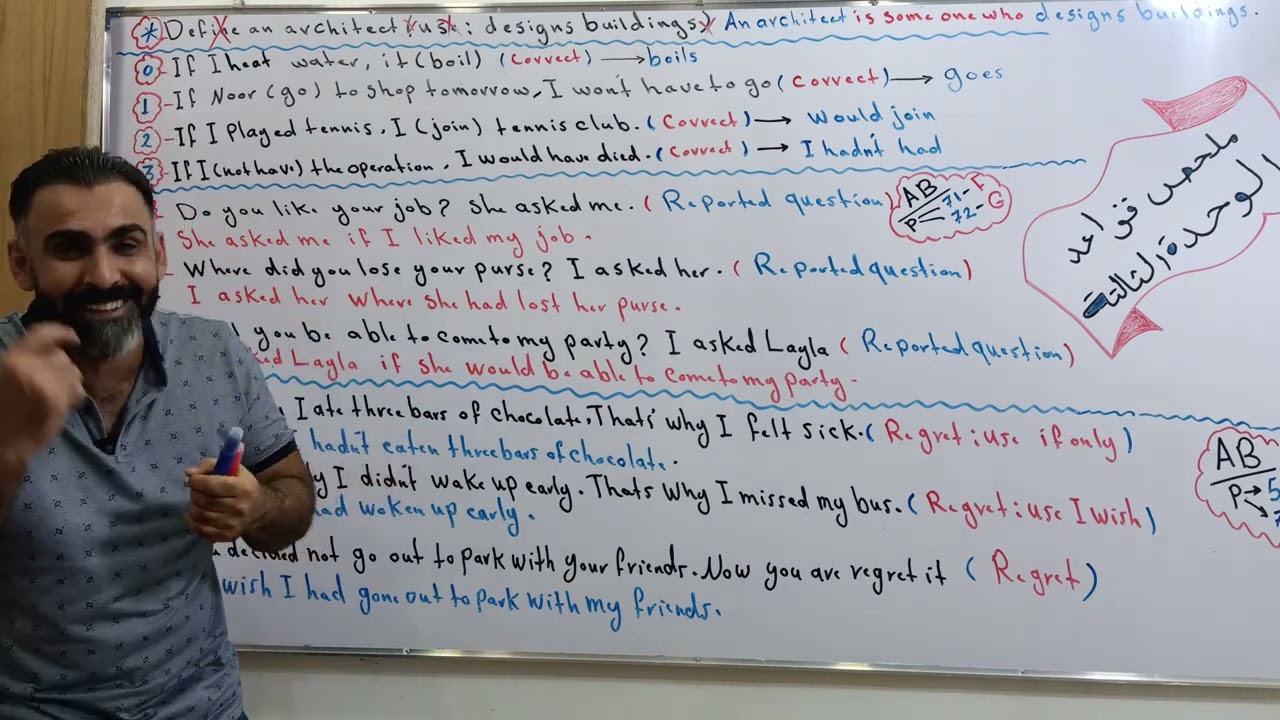 * Define an architect (use: designs buildings) An architect is someone who designs buildings.
0 - If I heat water, it (boil) (correct) → boils
1 - If Noor (go) to shop tomorrow, I won't have to go (correct) → goes
2 - If I played tennis, I (join) tennis club. (correct) → Would join
3 - If I (not have) the operation, I would have died. (correct) → I hadn't had
Do you like your job? She asked me. (Reported question)
She asked me if I liked my job.
Where did you lose your purse? I asked her. (Reported question)
I asked her where she had lost her purse.
you be able to come to my party? I asked Layla (Reported question)
Layla if she would be able to come to my party.
I ate three bars of chocolate. That's why I felt sick. (Regret: use if only)
hadn't eaten three bars of chocolate.
I didn't wake up early. That's why I missed my bus. (Regret: use I wish)
had woken up early.
decided not go out to park with your friends. Now you are regret it (Regret)
wish I had gone out to park with my friends.
AB
P 71- F
72- G
ملخص قواعد
الوحدة الثالثة
AB
P → 5
→ 7